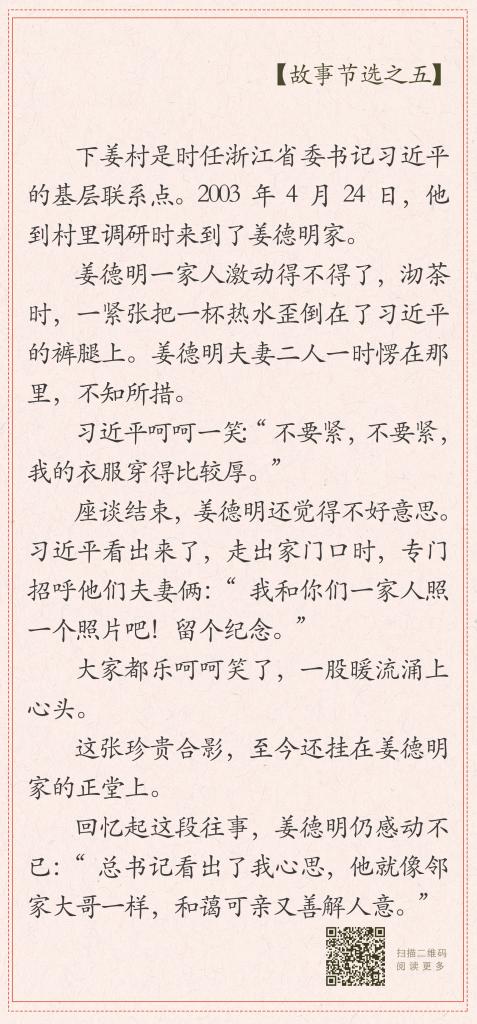 【故事节选之五】
下姜村是时任浙江省委书记习近平
的基层联系点。2003 年 4 月 24 日，他
到村里调研时来到了姜德明家。
姜德明一家人激动得不得了，沏茶
时，一紧张把一杯热水歪倒在了习近平
的裤腿上。姜德明夫妻二人一时愣在那
里，不知所措。
习近平呵呵一笑：“不要紧，不要紧，
我的衣服穿得比较厚。”
座谈结束，姜德明还觉得不好意思。
习近平看出来了，走出家门口时，专门
招呼他们夫妻俩：“我和你们一家人照
一个照片吧！留个纪念。”
大家都乐呵呵笑了，一股暖流涌上
心头。
这张珍贵合影，至今还挂在姜德明
家的正堂上。
回忆起这段往事，姜德明仍感动不
已：“总书记看出了我心思，他就像邻
家大哥一样，和蔼可亲又善解人意。”
扫描二维码
阅读更多